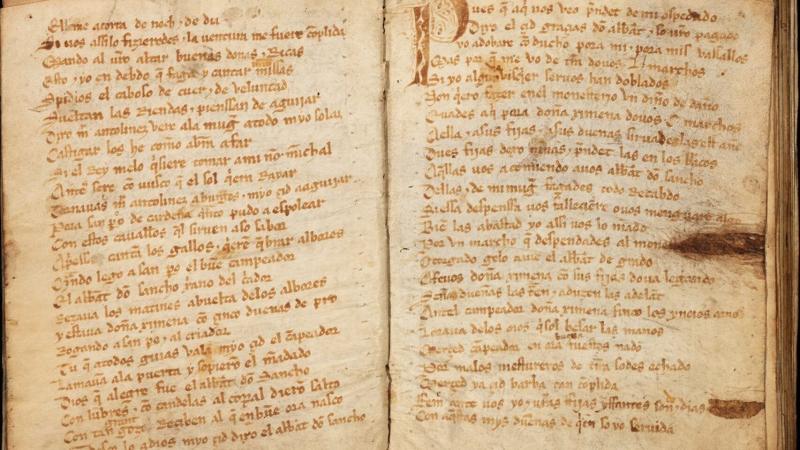 Ellame acorra de noch & de dia
Si vos assilo fizieredes & la ventura me fuere cõplida
Mando al vr̃o altar buenas donas & Ricas
Esto & yo en debdo q̃ faga y cantar missas
Spidios el caboso de cuer & de veluntad
Sueltan las Riendas & pienssan de aguijar
Dixo m̃ antolinez vere ala mugr̃ atodo myo solaz
Castigar los he como abrã afar
Si el Rey melo q̃siere tomar ami nõ minchal
Antes sere cõ vusco q̃ el sol q̃era Rayar
Tornauas m̃ antolinez aburgos & myo çid aaguijar
Pora san p̃o de cardeña q̃nto pudo a espolear
Con estos cauall̃os q̃l siruen aso sabor
Apriessa cantã los gallos & q̃ere q̃brar albores
Q̃ndo lego a san pero el bũe campeador
El abbat dõ sancho xr̃ano del c̃ador
Rezaua los matines abuelta delos albores
y estaua doña ximena cõ çinco duenas de pro
Rogando a san p̃o & al criador
Tu q̃ atodos guias val amyo çid el cãpeador
Lamauã ala puerta y sopierõ el mãdado
Dios q̃ alegre fue el abbat dõ sancho
Con lũbres & cõ candelas al corral dierõ salto
Con tan grant gozo Reçiben al q̃ en bũe ora nasco
lo adios myo çid dixo el abbat dõ sancho
Pues q̃ aq̃ uos veo p̃ndet de mi ospedado
Dixo el çid gr̃aças dõ abbat & so vr̃o pagado
yo adobare cõ ducho pora mi & pora mis vassallos
Mas por q̃ me vo de tr̃ra douos L marchos
Si yo algũ visq̃er seruos han doblados
Non q̃ero fazer en el monesterio vn dĩo de daño
Euades aq̃ pora doña ximena douos C marchos
Aella & asus fijas & asus duenas siruadeslas est año
Dues fijas dexo niñas & p̃ndet las en los braços
Aq̃llas uos acomiendo auos abbat dõ sancho
Dellas & de mi mugr̃ fagades todo Recabdo
Si essa despenssa uos falleçiere o uos menguare algo
Biẽ las abastad yo assi uos lo mãdo
Por vn marcho q̃ despendades al mone
Otorgado gelo auie el abbat de grado
Afeuos doña ximena cõ sus fijas do ua legando
Señas dueñas las trã & aduzen las adelãt
Antel campeador doña ximena finco los ynoios amos
Loraua delos oios q̃sol besar las manos
Merçed cãpeador en ora buena fuestes nado
Por malos mestureros de tr̃ra sodes echado
Merçed ya çid barba tan cõplida
Fem ante uos yo & ur̃as fijas yffantes son & dias
Con aq̃stas mys dueñas de q̃en so yo seruida